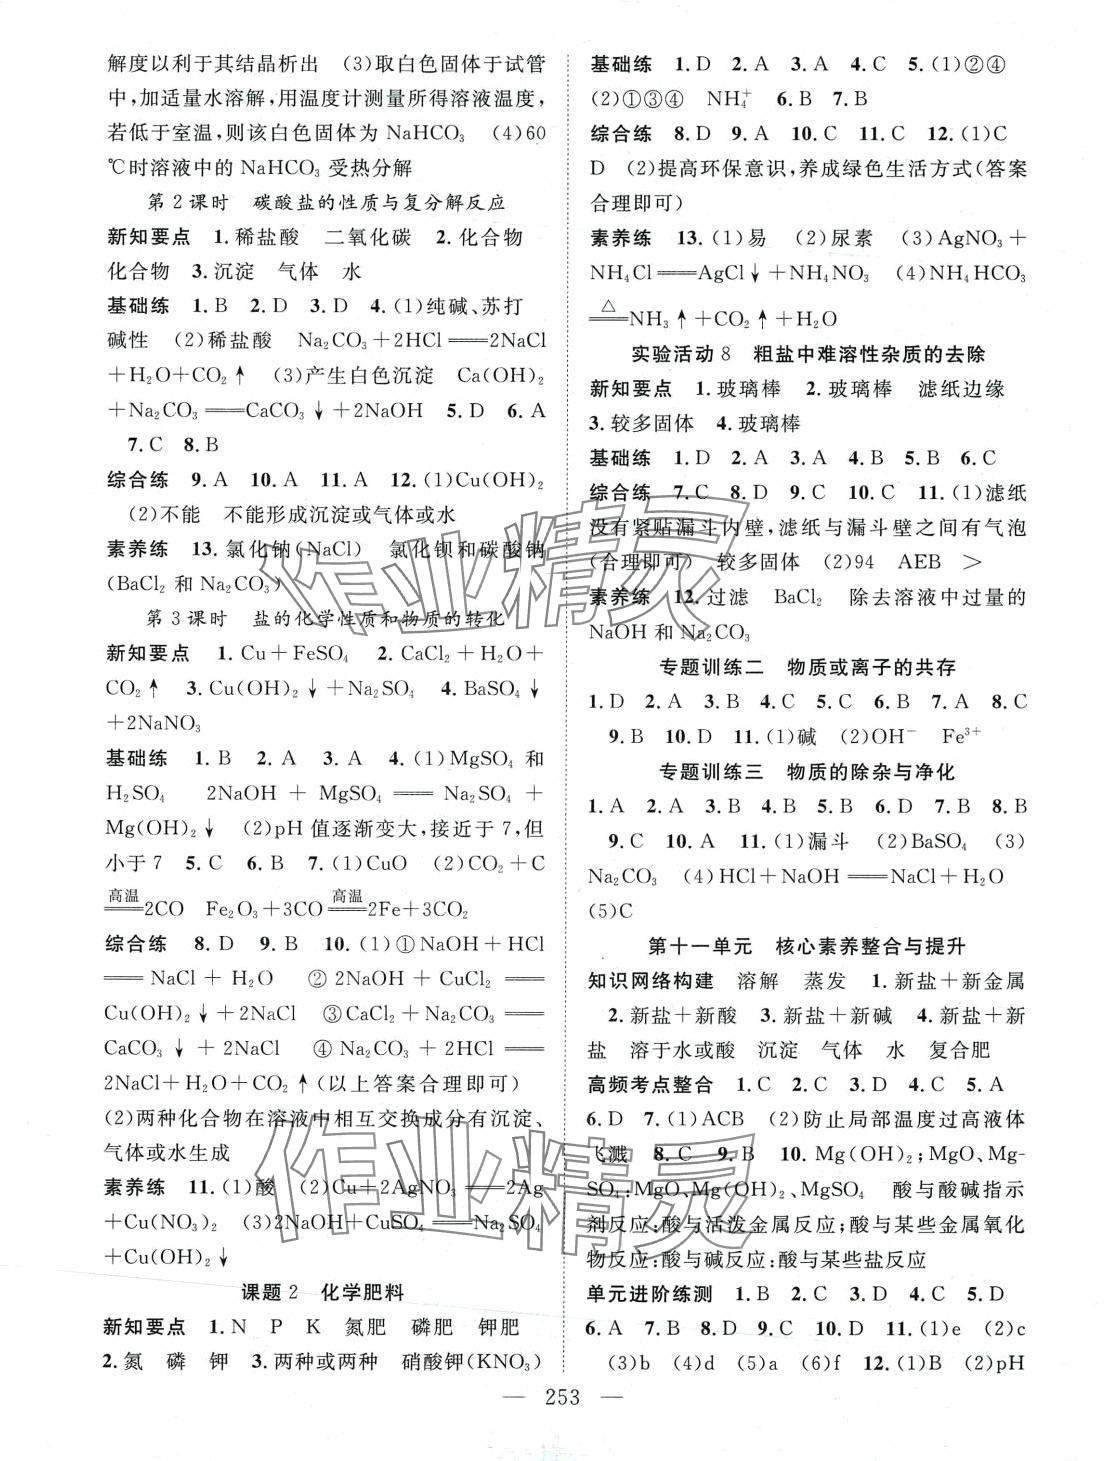 解度以利于其结晶析出 (3)取白色固体于试管
中,加适量水溶解,用温度计测量所得溶液温度,
若低于室温,则该白色固体为NaHCO₃ (4)60
℃时溶液中的NaHCO₃受热分解
第2课时 碳酸盐的性质与复分解反应
新知要点 1.稀盐酸 二氧化碳 2.化合物
化合物 3.沉淀 气体 水
基础练 1.B 2.D 3.D 4.(1)纯碱、苏打
碱性 (2)稀盐酸 Na₂CO₃+2HCl══2NaCl
+H₂O+CO₂↑ (3)产生白色沉淀 Ca(OH)₂
+Na₂CO₃══CaCO₃↓+2NaOH 5.D 6.A
7.C 8.B
综合练 9.A 10.A 11.A 12.(1)Cu(OH)₂
(2)不能 不能形成沉淀或气体或水
素养练 13.氯化钠(NaCl) 氯化钡和碳酸钠
(BaCl₂和Na₂CO₃)
第3课时 盐的化学性质和物质的转化
新知要点 1.Cu+FeSO₄ 2.CaCl₂+H₂O+
CO₂↑ 3.Cu(OH)₂↓+Na₂SO₄ 4.BaSO₄↓
+2NaNO₃
基础练 1.B 2.A 3.A 4.(1)MgSO₄和
H₂SO₄ 2NaOH+MgSO₄══Na₂SO₄+
Mg(OH)₂↓ (2)pH值逐渐变大,接近于7,但
小于7 5.C 6.B 7.(1)CuO (2)CO₂+C
高温══2CO Fe₂O₃+3CO高温══2Fe+3CO₂
综合练 8.D 9.B 10.(1)①NaOH+HCl
══NaCl+H₂O ②2NaOH+CuCl₂══
Cu(OH)₂↓+2NaCl ③CaCl₂+Na₂CO₃══
CaCO₃↓+2NaCl ④Na₂CO₃+2HCl══
2NaCl+H₂O+CO₂↑(以上答案合理即可)
(2)两种化合物在溶液中相互交换成分有沉淀、
气体或水生成
素养练 11.(1)酸 (2)Cu+2AgNO₃══2Ag
+Cu(NO₃)₂ (3)2NaOH+CuSO₄══Na₂SO₄
+Cu(OH)₂↓
课题2 化学肥料
新知要点 1.N P K 氮肥 磷肥 钾肥
2.氮 磷 钾 3.两种或两种 硝酸钾(KNO₃)
基础练 1.D 2.A 3.A 4.C 5.(1)②④
(2)①③④ NH₄⁺ 6.B 7.B
综合练 8.D 9.A 10.C 11.C 12.(1)C
D (2)提高环保意识,养成绿色生活方式(答案
合理即可)
素养练 13.(1)易 (2)尿素 (3)AgNO₃+
NH₄Cl══AgCl↓+NH₄NO₃ (4)NH₄HCO₃
△══NH₃↑+CO₂↑+H₂O
实验活动8 粗盐中难溶性杂质的去除
新知要点 1.玻璃棒 2.玻璃棒 滤纸边缘
3.较多固体 4.玻璃棒
基础练 1.D 2.A 3.A 4.B 5.B 6.C
综合练 7.C 8.D 9.C 10.C 11.(1)滤纸
没有紧贴漏斗内壁,滤纸与漏斗壁之间有气泡
(合理即可) 较多固体 (2)94 AEB >
素养练 12.过滤 BaCl₂ 除去溶液中过量的
NaOH和Na₂CO₃
专题训练二 物质或离子的共存
1.D 2.A 3.B 4.C 5.C 6.B 7.A 8.C
9.B 10.D 11.(1)碱 (2)OH⁻ Fe³⁺
专题训练三 物质的除杂与净化
1.A 2.A 3.B 4.B 5.B 6.D 7.B 8.B
9.C 10.A 11.(1)漏斗 (2)BaSO₄ (3)
Na₂CO₃ (4)HCl+NaOH══NaCl+H₂O
(5)C
第十一单元 核心素养整合与提升
知识网络构建 溶解 蒸发 1.新盐+新金属
2.新盐+新酸 3.新盐+新碱 4.新盐+新
盐 溶于水或酸 沉淀 气体 水 复合肥
高频考点整合 1.C 2.C 3.C 4.C 5.A
6.D 7.(1)ACB (2)防止局部温度过高液体
飞溅 8.C 9.B 10.Mg(OH)₂;MgO、Mg-
SO₄;MgO、Mg(OH)₂、MgSO₄ 酸与酸碱指示
剂反应;酸与活泼金属反应;酸与某些金属氧化
物反应;酸与碱反应;酸与某些盐反应
单元进阶练测 1.B 2.C 3.D 4.C 5.D
6.A 7.B 8.D 9.C 10.D 11.(1)e (2)c
(3)b (4)d (5)a (6)f 12.(1)B (2)pH
— 253 —
作业精灵
作业精灵